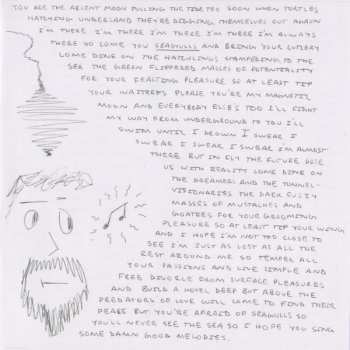 YOU ARE THE ABSENT MOON PULLING THE TIDE TOO SOON WHEN TURTLES
HATCHING UNDERLAND THEY'RE DIGGING THEMSELVES OUT AGAIN
I'M THERE I'M THERE I'M THERE I'M THERE I'M ALWAYS
THERE SO COME YOU SEAGULLS AND BRING YOUR CUTLERY
COME DINE ON THE HATCHLINGS STAMPEDING TO THE
SEA THE GREEN FLIPPERED MASSES OF POTENTIALITY
FOR YOUR FEASTING PLEASURE SO AT LEAST TIP
YOUR WAITRESS PLEASE YOU'RE MY MAGNETIC
MOON AND EVERYBODY ELSE'S TOO I'LL FIGHT
MY WAY FROM UNDERGROUND TO YOU I'LL
SWIM UNTIL I DROWN I SWEAR I
SWEAR I SWEAR I SWEAR I'M ALMOST
THERE BUT IN FLY THE FUTURE DOSE
US WITH REALITY COME DINE ON
THE DREAMERS AND THE TUNNEL-
VISIONARIES THE DARK FUZZY
MASSES OF MUSTACHES AND
GOATEES FOR YOUR GROOMING
PLEASURE SO AT LEAST TIP YOUR WING
AND I HOPE I'M NOT TOO CLOSE TO
SEE I'M JUST AS LOST AS ALL THE
REST AROUND ME SO TEMPER ALL
YOUR PASSIONS AND LIVE SIMPLE AND
FREE DIVORCE FROM SURFACE PLEASURES
AND BUILD A HOTEL DEEP BUT ABOVE THE
PREDATORS OF LOVE WILL COME TO FIND THEIR
PEACE BUT YOU'RE AFRAID OF SEAGULLS SO
YOU'LL NEVER SEE THE SEA SO I HOPE YOU SING
SOME DAMN GOOD MELODIES.